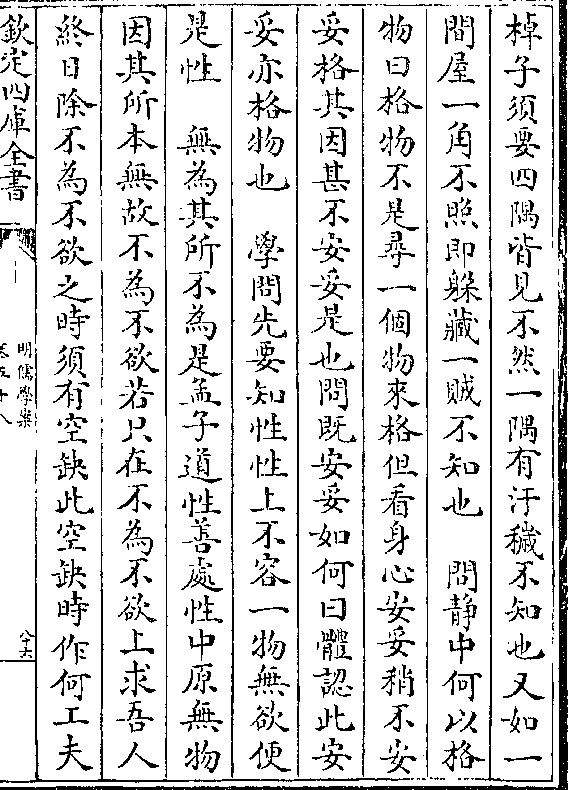 棹子須要四隅皆見不然一隅有汙穢不知也又如一
間屋一角不照即躱藏一賊不知也　問静中何以格
物曰格物不是尋一個物來格但看身心安妥稍不安
妥格其因甚不安妥是也問既安妥如何曰體認此安
妥亦格物也　學問先要知性性上不容一物無欲便
是性　無為其所不為是孟子道性善處性中原無物
因其所本無故不為不欲若只在不為不欲上求吾人
終日除不為不欲之時須有空缺此空缺時作何工夫
欽定四庫全書
明儒學案
卷五十八